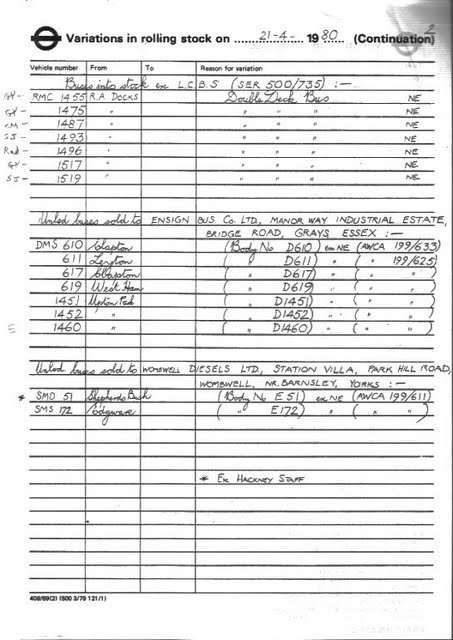 Variations in rolling stock on 21-4- 1980 (Continuation)
Vehicle number From To Reason for variation
Buses into stock ex L.C.B.S (SER 500/735) :—
GY- RMC 1455 R.A. DOCKS Double Deck Bus NE
GY- 1475 " " " " NE
1487 " " " " NE
SJ- 1493 " " " " NE
Rad- 1496 " " " " NE
GY- 1517 " " " " NE
SJ- 1519 " " " " NE
Unlicd buses sold to ENSIGN BUS Co. LTD, MANOR WAY INDUSTRIAL ESTATE,
BRIDGE ROAD, GRAYS ESSEX :—
DMS 610 Clapton (Body No D610) ex NE (AWCA 199/633)
611 Leyton ( " D611) " ( " 199/625)
617 Clapton ( " D617) " ( " " )
619 West Ham ( " D619) " ( " " )
1451 Upton Park ( " D1451) " ( " " )
1452 " ( " D1452) " ( " " )
E 1460 " ( " D1460) " ( " " )
Unlicd buses sold to WOMBWELL DIESELS LTD, STATION VILLA, PARK HILL ROAD,
WOMBWELL, NR. BARNSLEY, YORKS :—
* SMD 51 Shepherds Bush (Body No E51) ex NE (AWCA 199/611)
SMS 172 Edgware ( " E172) " ( " " )
* Ex HACKNEY STAFF
408/69(2) (500 3/79 121/1)